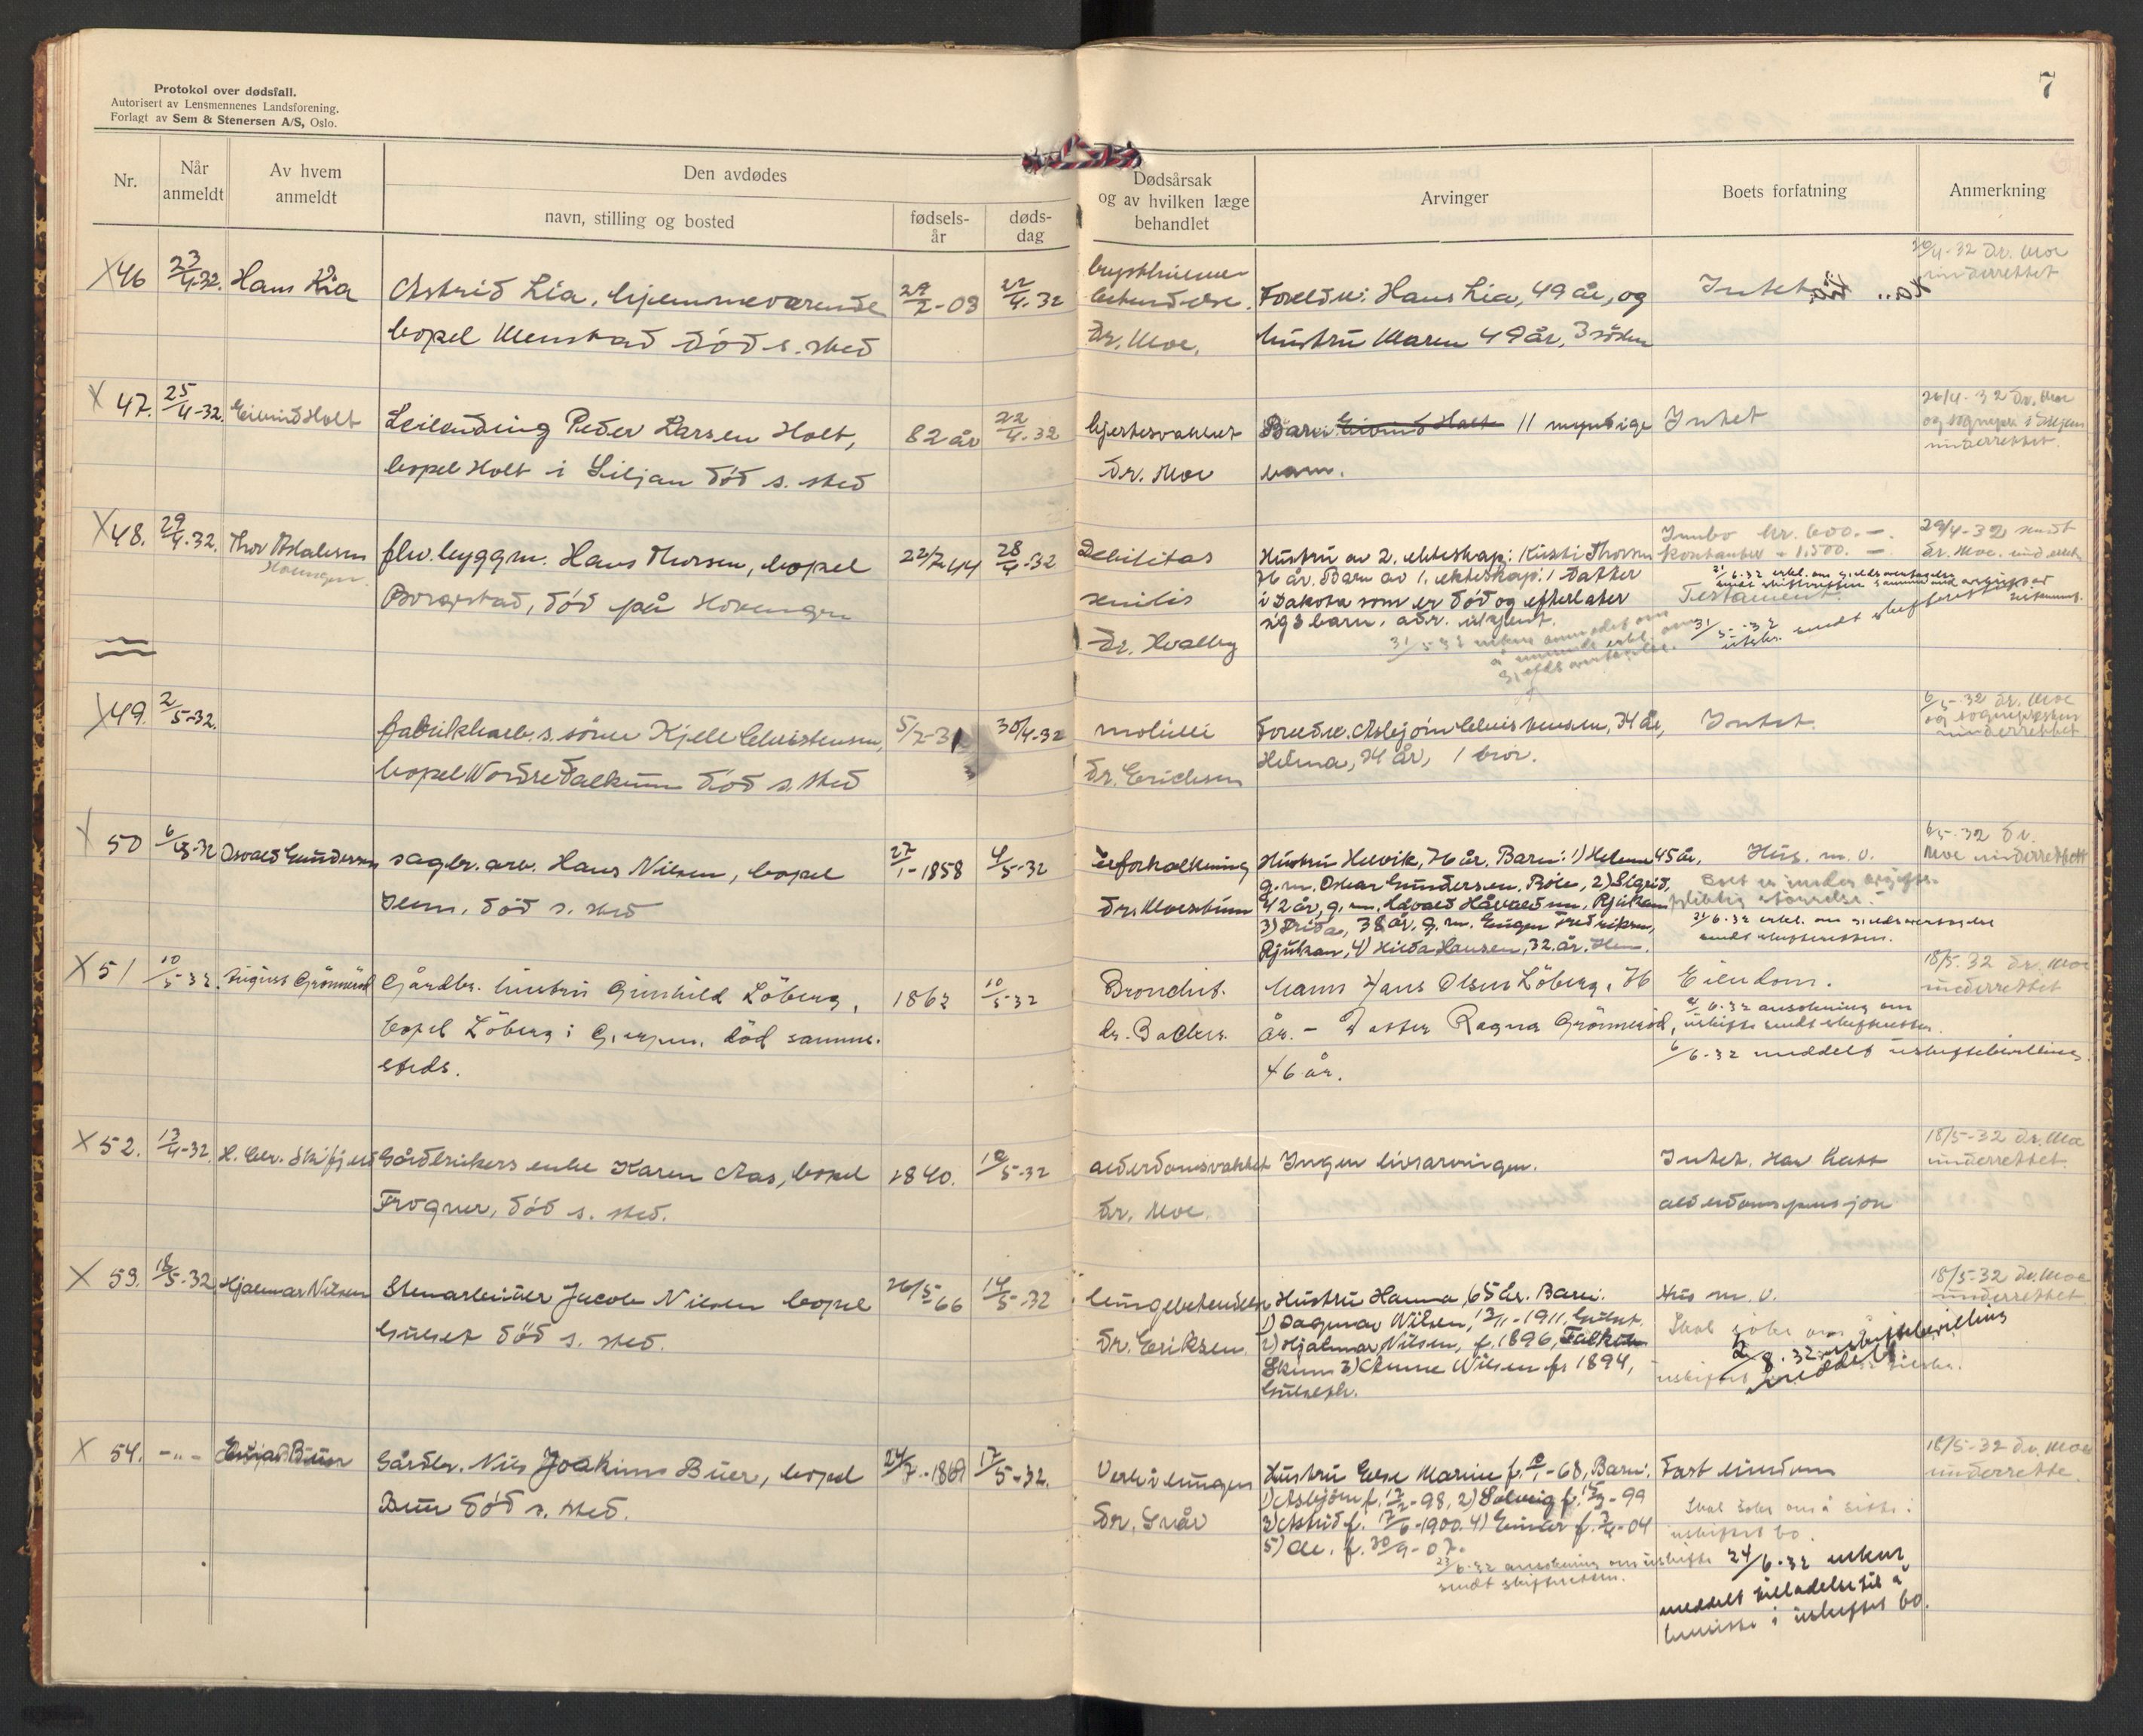 Protokol over dødsfall.
Autorisert av Lensmennenes Landsforening.
Forlagt av Sem & Stenersen A/S, Oslo.
7
Nr.
Når anmeldt
Av hvem anmeldt
Den avdødes
navn, stilling og bosted
fødsels-år
døds-dag
Dødsårsak og av hvilken læge behandlet
Arvinger
Boets forfatning
Anmerkning
X 46 23/4-32. Hans Lia
Astrid Lia, hjemmeværende
bopel Menstad død s. sted
22/4-32
betendelse.
Dr. Moe.
Foreldre: Hans Lia, 49 år, og
hustru Maren 49 år, 3 søsken
Intet
20/4-32 Dr. Moe
underrettet
X 47. 25/4-32. Eivind Holt
Leilending Peder Larsen Holt,
bopel Holt i Siljan død s. sted
82 år
22/4-32
hjertesvakhet
Dr. Moe
Barn: Eivind Holt 11 myndige
barn.
Intet
26/4-32 Dr. Moe
og sognepr. i Siljan
underrettet.
X 48. 29/4-32. Thor
fhv. byggm. Hans Thorsen, bopel
Borgestad, død på Hovenga
22/7 44
28/4-32
Debilitas
senilis
Dr. Hvalby
Hustru av 2. ekteskap: Kirsti Thorsen
76 år. Barn av 1. ekteskap: 1 datter
i Dakota som er død og efterlater
sig 3 barn, adr. ukjent.
Innbo kr. 600.-
Kontanter - 1.500.-
Testament.
29/4-32 sendt
Dr. Moe. underrett.
X 49. 2/5-32.
fabrikkarb. s. sønn Kjell Christensen,
bopel Nordre Falkum død s. sted
5/2-31
30/4-32
Dr. Erichsen
Foreldre. Asbjørn Christensen, 34 år,
Helma, 34 år, 1 bror.
Intet.
6/5-32 Dr. Moe
og sognepresten
underrettet
X 50 6/5-32 Osvald Gundersen
sagbr. arb. Hans Nilsen, bopel
død s. sted
27/1-1858
4/5-32
åreforkalkning
Dr. Moestrum
Hustru Helvik, 76 år. Barn: 1) Helene 45 år,
g. m. Oskar Gundersen, Bøle, 2) Sigrid,
42 år, g. m. Edvald Håvaldsen, Rjukan
3) Frida, 38 år, g. m. Eugen Fredriksen,
Rjukan, 4) Hilda Hansen, 32 år.
Hus. m. v.
21/6-32 erkl. om gjeldsovertagelse
sendt skifteretten.
6/5-32 Dr.
Moe underrettett
X 51 10/5-32. August Grønnerød
Gårdbr. hustru Gunhild Løberg,
bopel Løberg i Gjerpen. død samme-
steds.
1862
10/5-32
Bronchit.
dr. Backer.
Mann Hans Olsen Løberg, 76
år. - Datter Ragna Grønnerød,
46 år.
Eiendom.
2/6-32 ansøkning om
uskifte sendt skifteretten.
6/6-32 meddelt uskiftebevilling.
18/5-32 Dr. Moe
underrettet
X 52. 13/4-32. H. Chr. Skifjeld
Gårdbrukers enke Karen Aas, bopel
Frogner, død s. sted.
1840.
12/5-32
alderdomsvakhet
Dr. Moe.
Ingen livsarvinger.
Intet. Har hatt
alderdomspensjon
18/5-32 Dr. Moe
underrettet.
X 53. 18/5-32. Hjalmar Nilsen
Stenarbeider Jacob Nilsen bopel
Gulset død s. sted.
26/5-66
14/5-32
lungebetendelse
Dr. Eriksen.
Hustru Hanna, 65 år. Barn:
1) Dagmar Nilsen, 13/11-1911, Gulset.
2) Hjalmar Nilsen, f. 1896, Falkum
Skien 3) Anne Nilsen f. 1894,
Gulset.
Hus m. v.
2/8.32 uskiftebevilling
meddelt
18/5-32 Dr. Moe
underrettet
X 54. -"-
Gårdbr. Nils Joakim Buer, bopel
Buer død s. sted.
24/7-1869
17/5-32.
Verk i lungen
Dr. Svår
Hustru Else Marine f. -68, Barn:
1) Asbjørn f. 17/2-98, 2) Solveig f. -99
3) Astrid f. 17/6-1900. 4) Einar f. -04
5) Ole. f. 20/9-07.
23/6-32 ansøkning om uskifte
sendt skifteretten.
Fast eiendom
Skal søke om å sitte i
uskiftet bo.
24/6-32 enken
meddelt tilladelse til å
hensitte i uskiftet bo.
18/5-32 Dr. Moe
underrette.